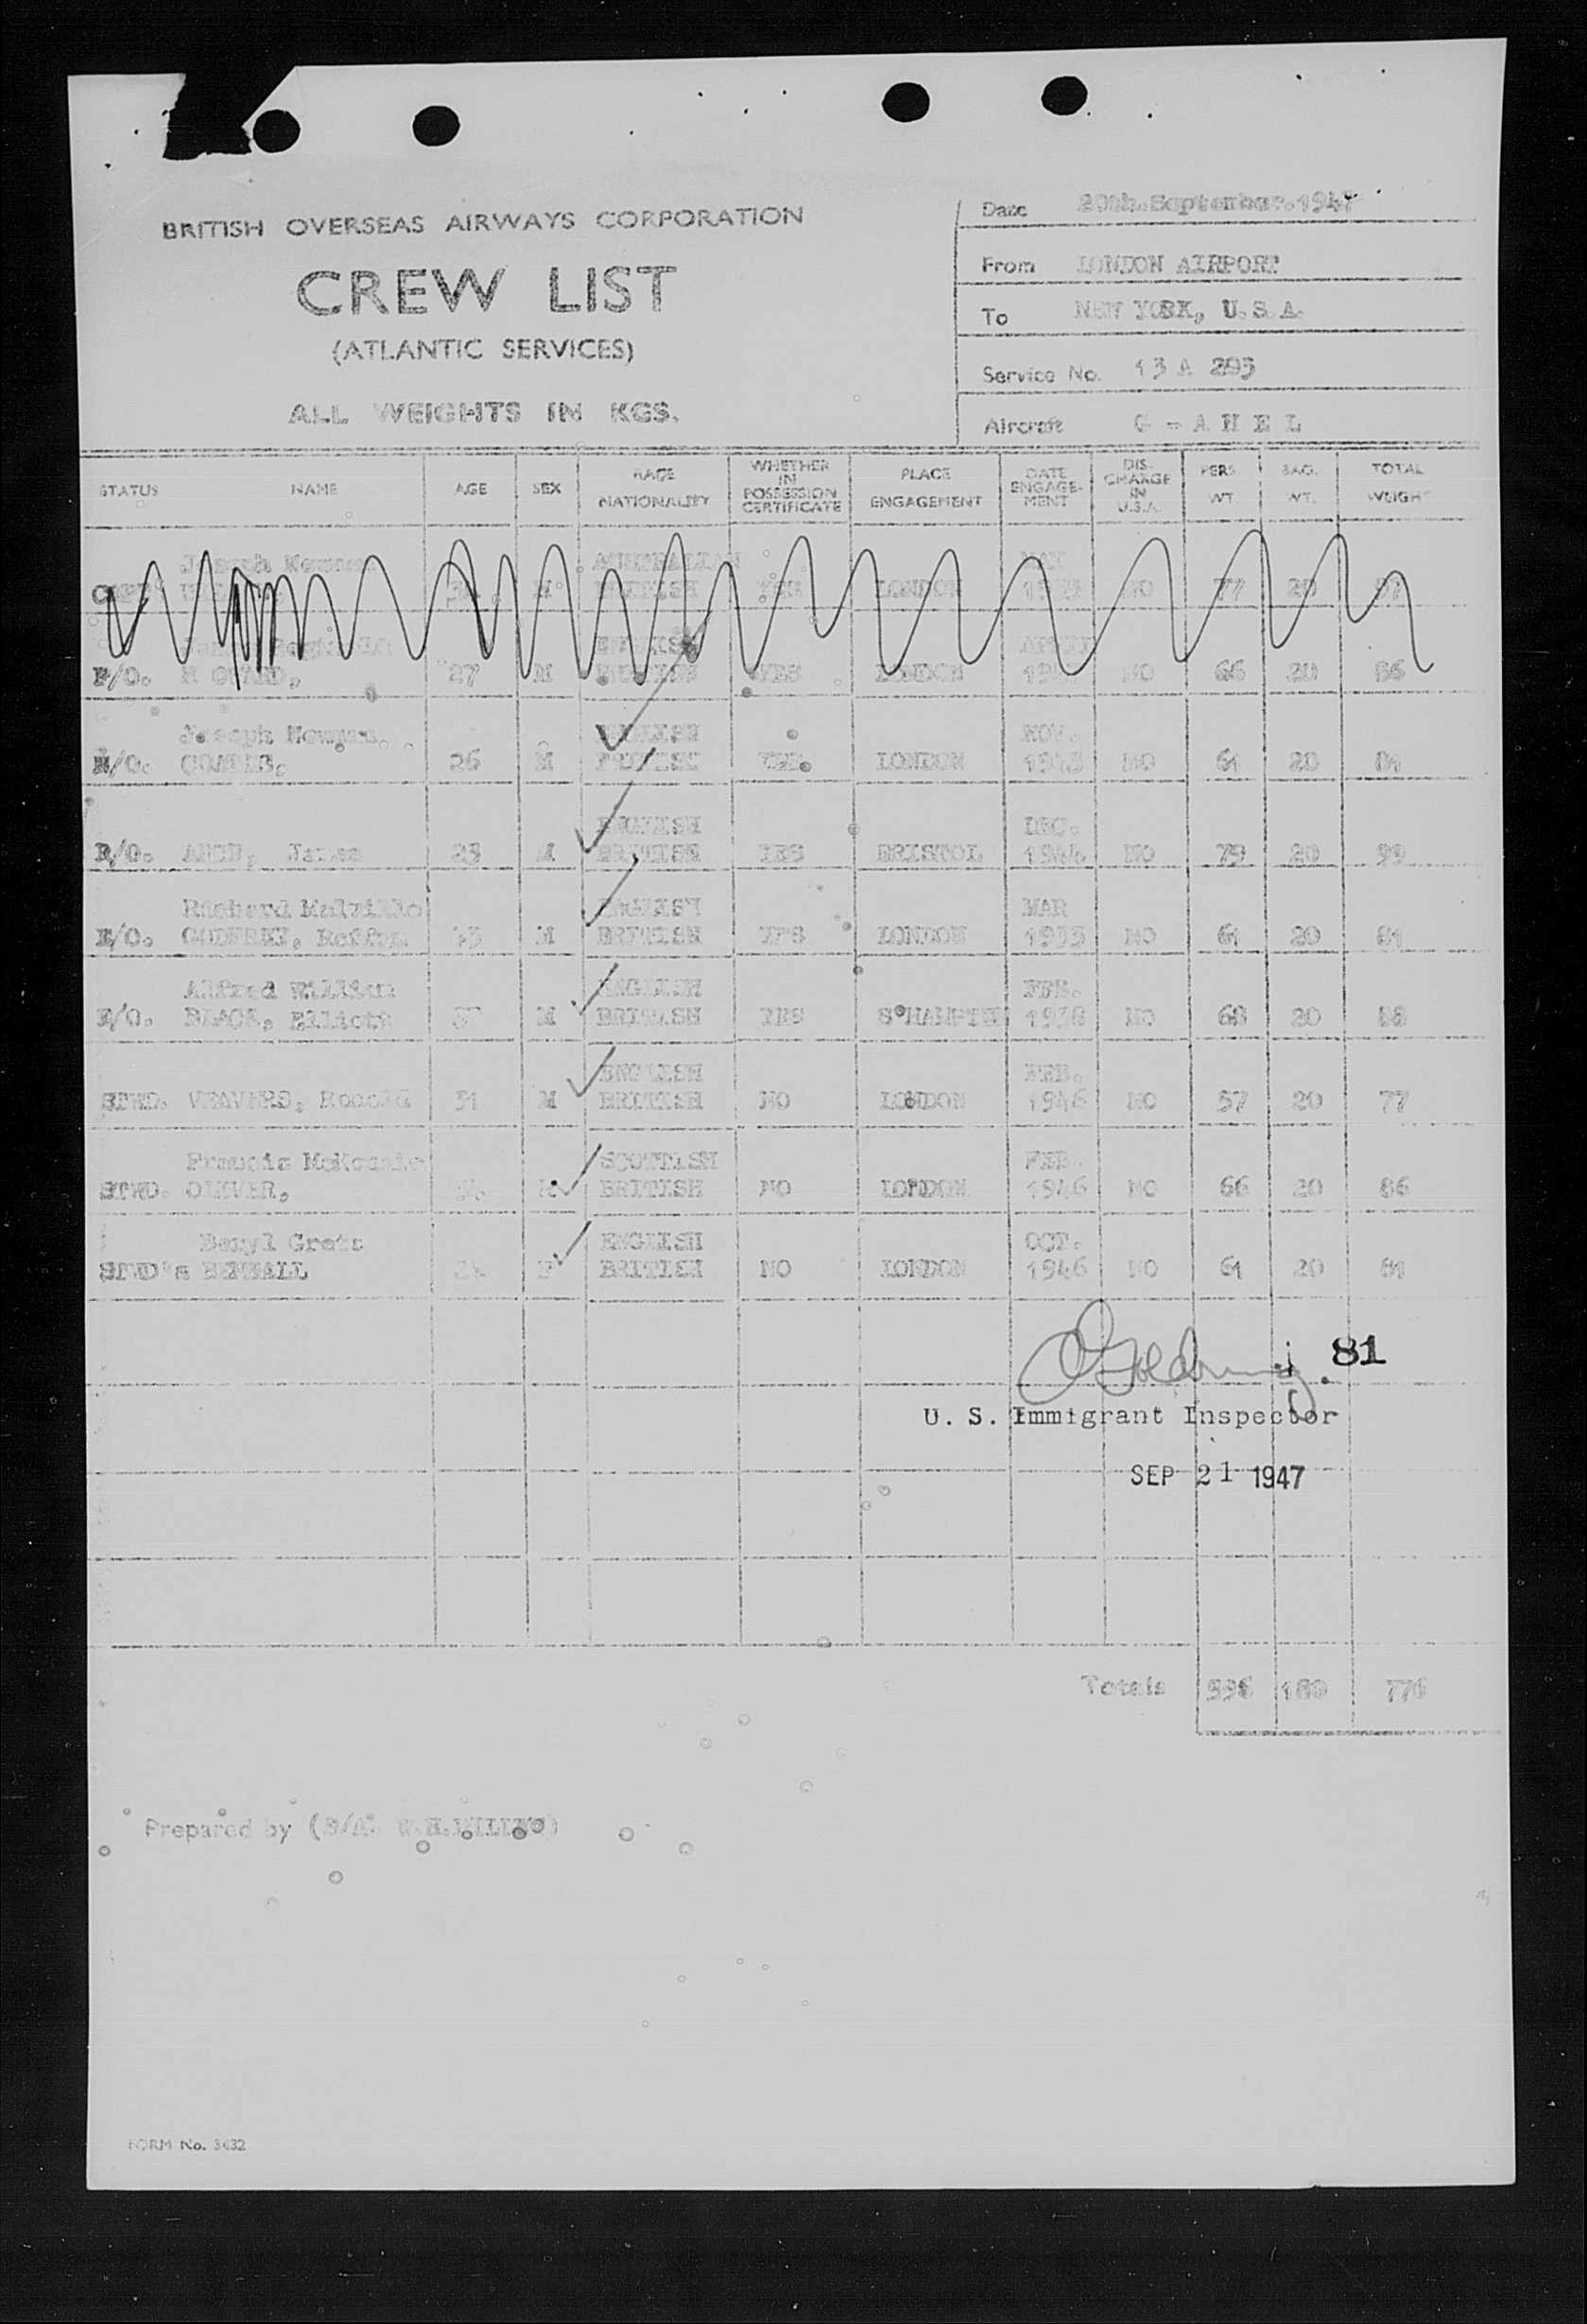 BRITISH OVERSEAS AIRWAYS CORPORATION
CREW LIST
(ATLANTIC SERVICES)
ALL WEIGHTS IN KGS.
Date 20th.September.1947
From LONDON AIRPORT
To NEW YORK, U.S.A.
Service No. 13 A 293
Aircraft G - A H E L
STATUS NAME AGE SEX RACE NATIONALITY WHETHER IN POSSESSION CERTIFICATE PLACE ENGAGEMENT DATE ENGAGE- MENT DIS- CHARGE IN U.S.A. PERS WT BAG. WT. TOTAL WEIGHT
Joseph AUSTRALIAN MAY
M BRITISH YES LONDON NO 77 20 97
ENGLISH APRIL
F/O. 27 M BRITISH YES LONDON NO 66 20 86
Joseph Newman. ENGLISH NOV.
N/O. 26 M BRITISH YES LONDON 1943 NO 61 20 81
ENGLISH DEC.
R/O. James 23 M BRITISH YES BRISTOL 1944 NO 79 20 99
Richard Melville ENGLISH MAR
E/O. GODFREY, 43 M BRITISH YES LONDON 1933 NO 61 20 81
Alfred William ENGLISH FEB.
E/O. BLACK, Elliott M BRITISH YES S'HAMPTON 1938 NO 68 20 88
ENGLISH FEB.
STWD. WEAVERS, Ronald 31 M BRITISH NO LONDON 1946 NO 57 20 77
Francis McKenzie SCOTTISH FEB.
STWD. OLIVER, BRITISH NO LONDON 1946 NO 66 20 86
Beryl Greta ENGLISH OCT.
STWD's 24 F BRITISH NO LONDON 1946 NO 61 20 81
81
U. S. Immigrant Inspector
SEP 21 1947
Totals 596 180 776
Prepared by
FORM No. 3432